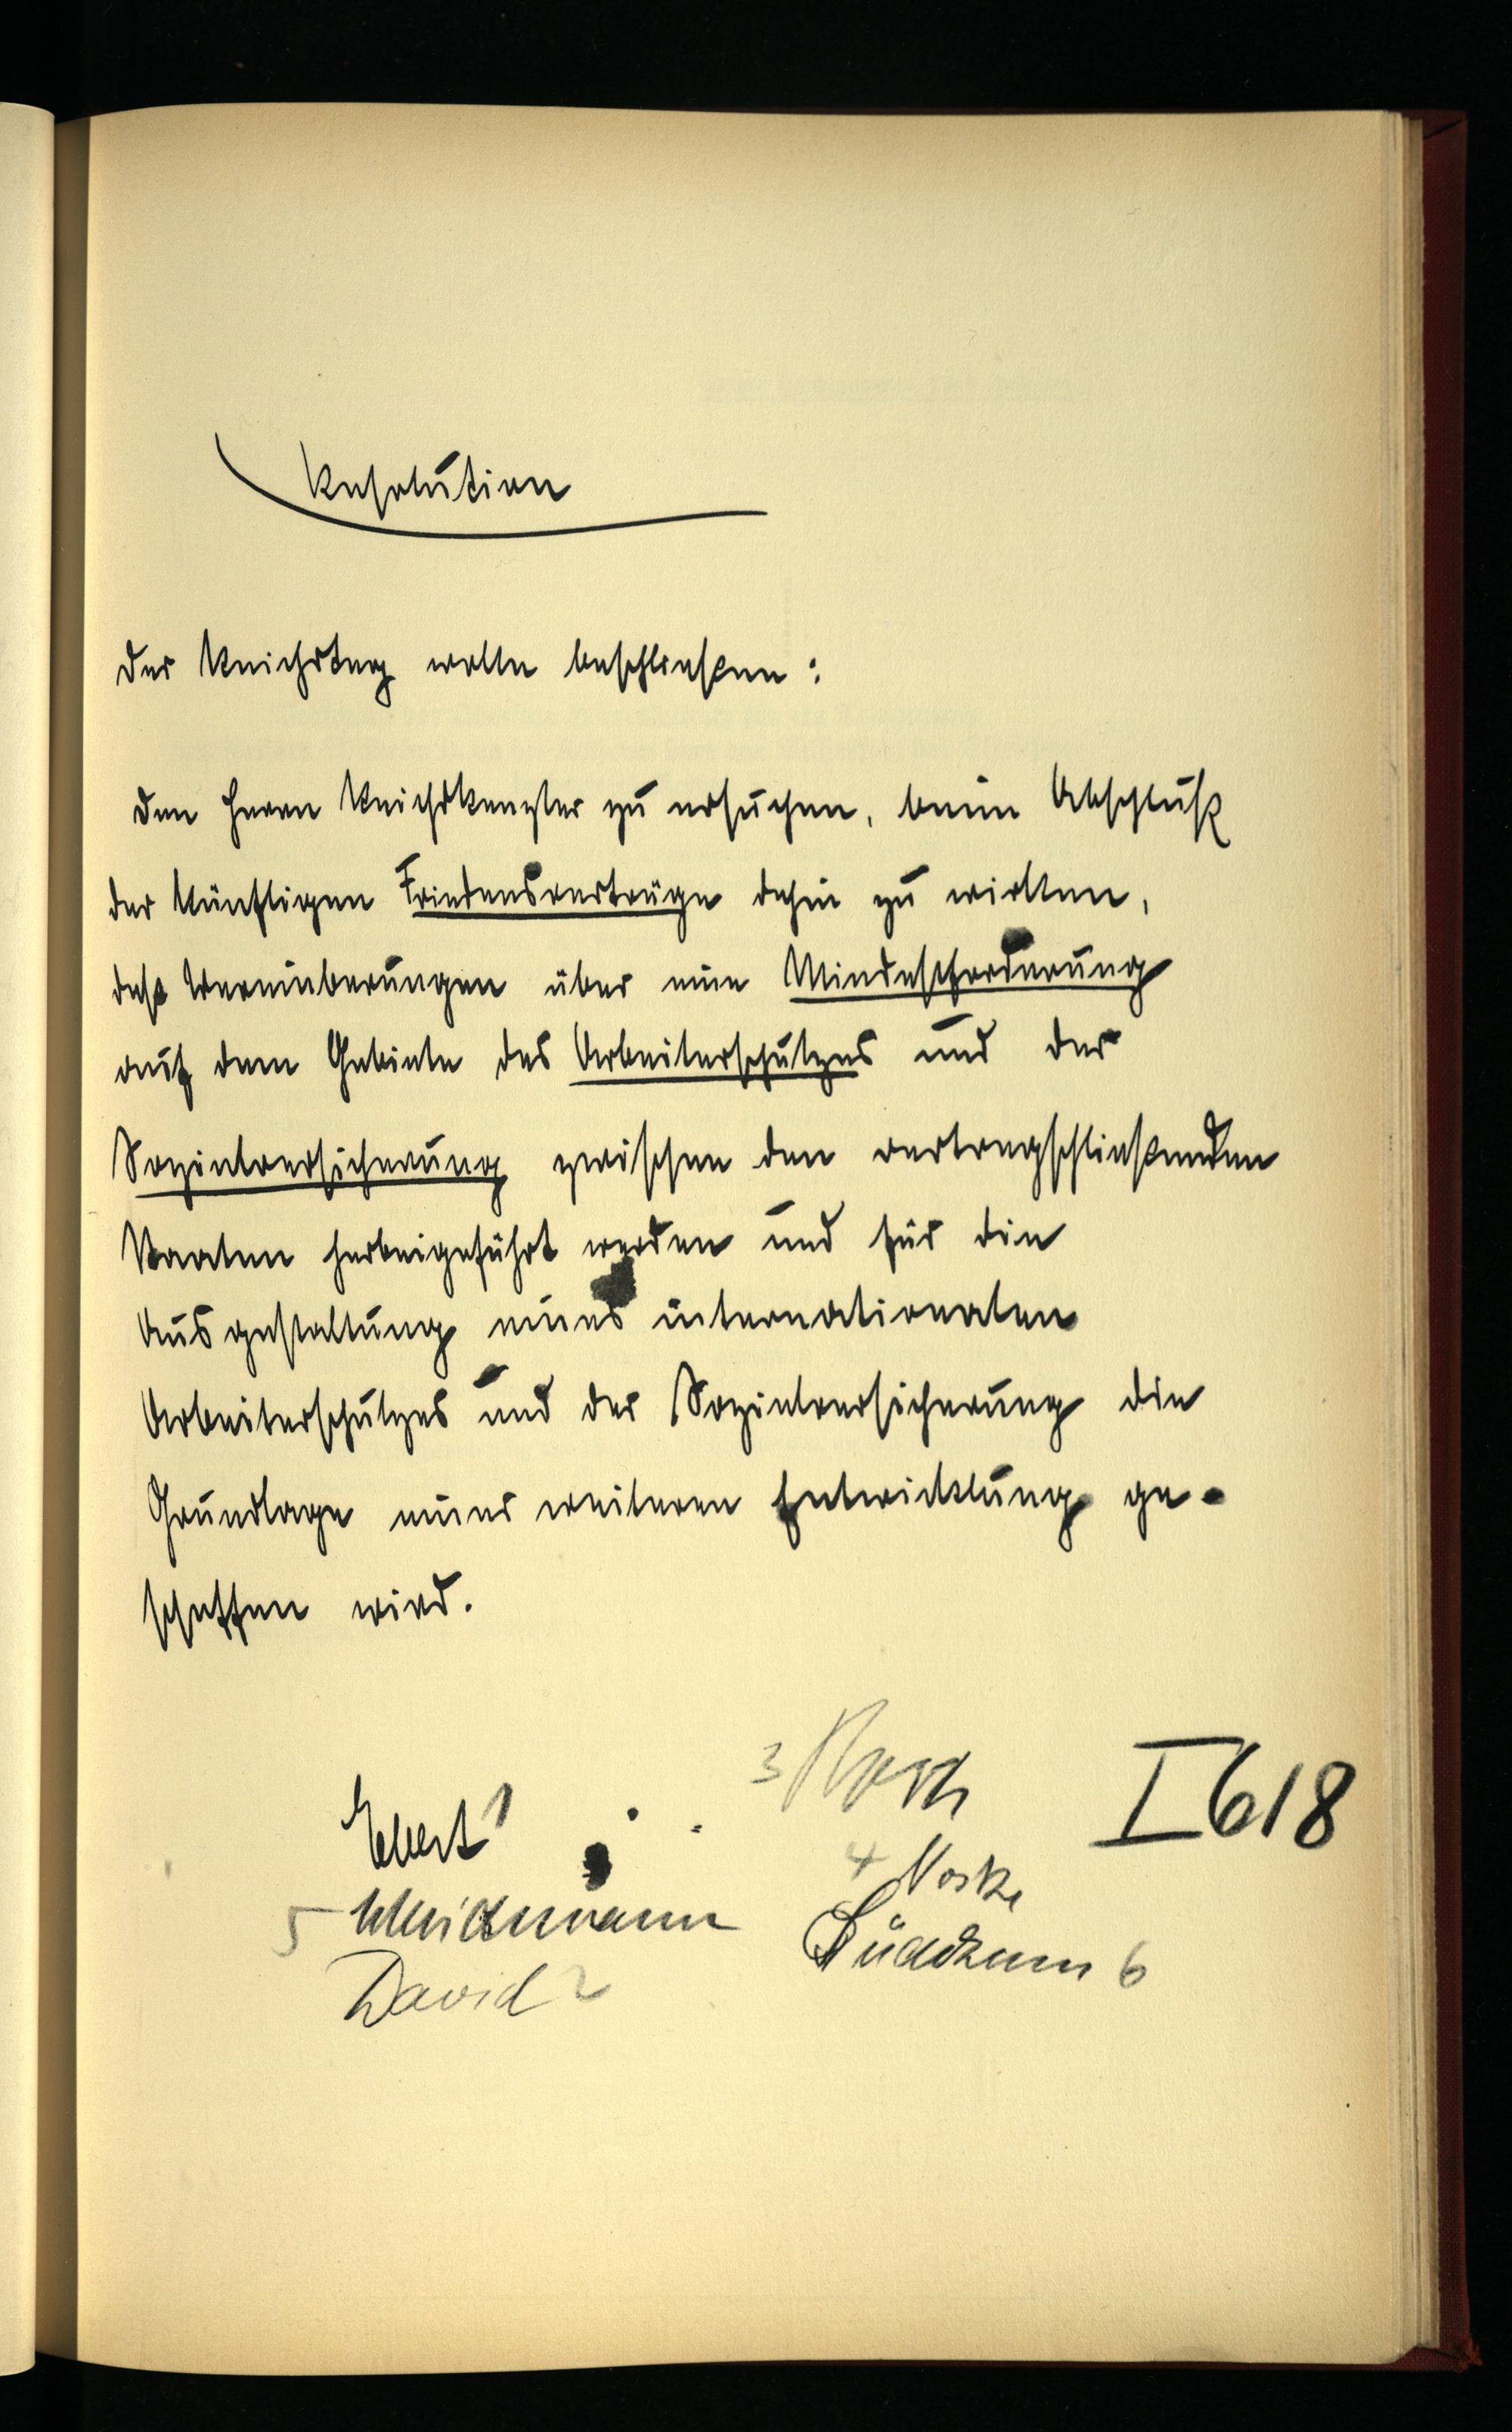 Resolution
Der Reichstag wolle beschließen:
den Herrn Reichskanzler zu ersuchen, beim Abschluß
der künftigen Friedensverträge dahin zu wirken,
daß Vereinbarungen über eine Mindestforderung
auf dem Gebiete des Arbeiterschutzes und der
Sozialversicherung zwischen den vertragschließenden
Staaten herbeigeführt werden und für die
Ausgestaltung eines internationalen
Arbeiterschutzes und der Sozialversicherung die
Grundlage einer weiteren Entwicklung ge-
schaffen wird.
3
I 618
Ebert 1
4 Noske
5 Scheidemann
Südekum 6
David 2